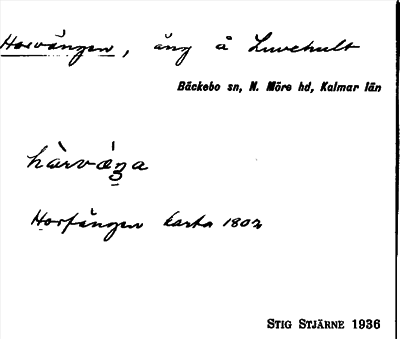 Horvången, äng å Luvehult
Bäckebo sn, N. Möre hd, Kalmar län
Horfången karta 1802
STIG STJÄRNE 1936